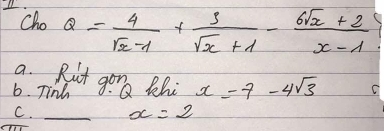 II.
Cho Q = 4/(√x - 1) + 3/(√x + 1) - (6√x + 2)/(x - 1)
a. Rút gọn
b. Tính Q khi x = 7 - 4√3
c. ___ x = 2
III